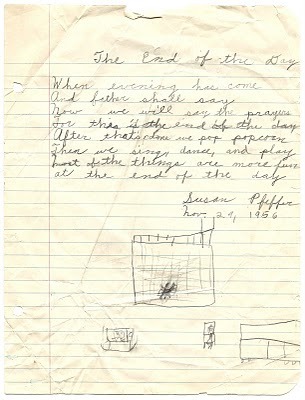 The End of the Day
When evening has come
And father shall say
Now we will say the prayers
for this is the end of the day
After that's done we pop popcorn
Then we sing, dance, and play
most of the things are more fun
at the end of the day
Susan Pfeffer
Nov. 29, 1956